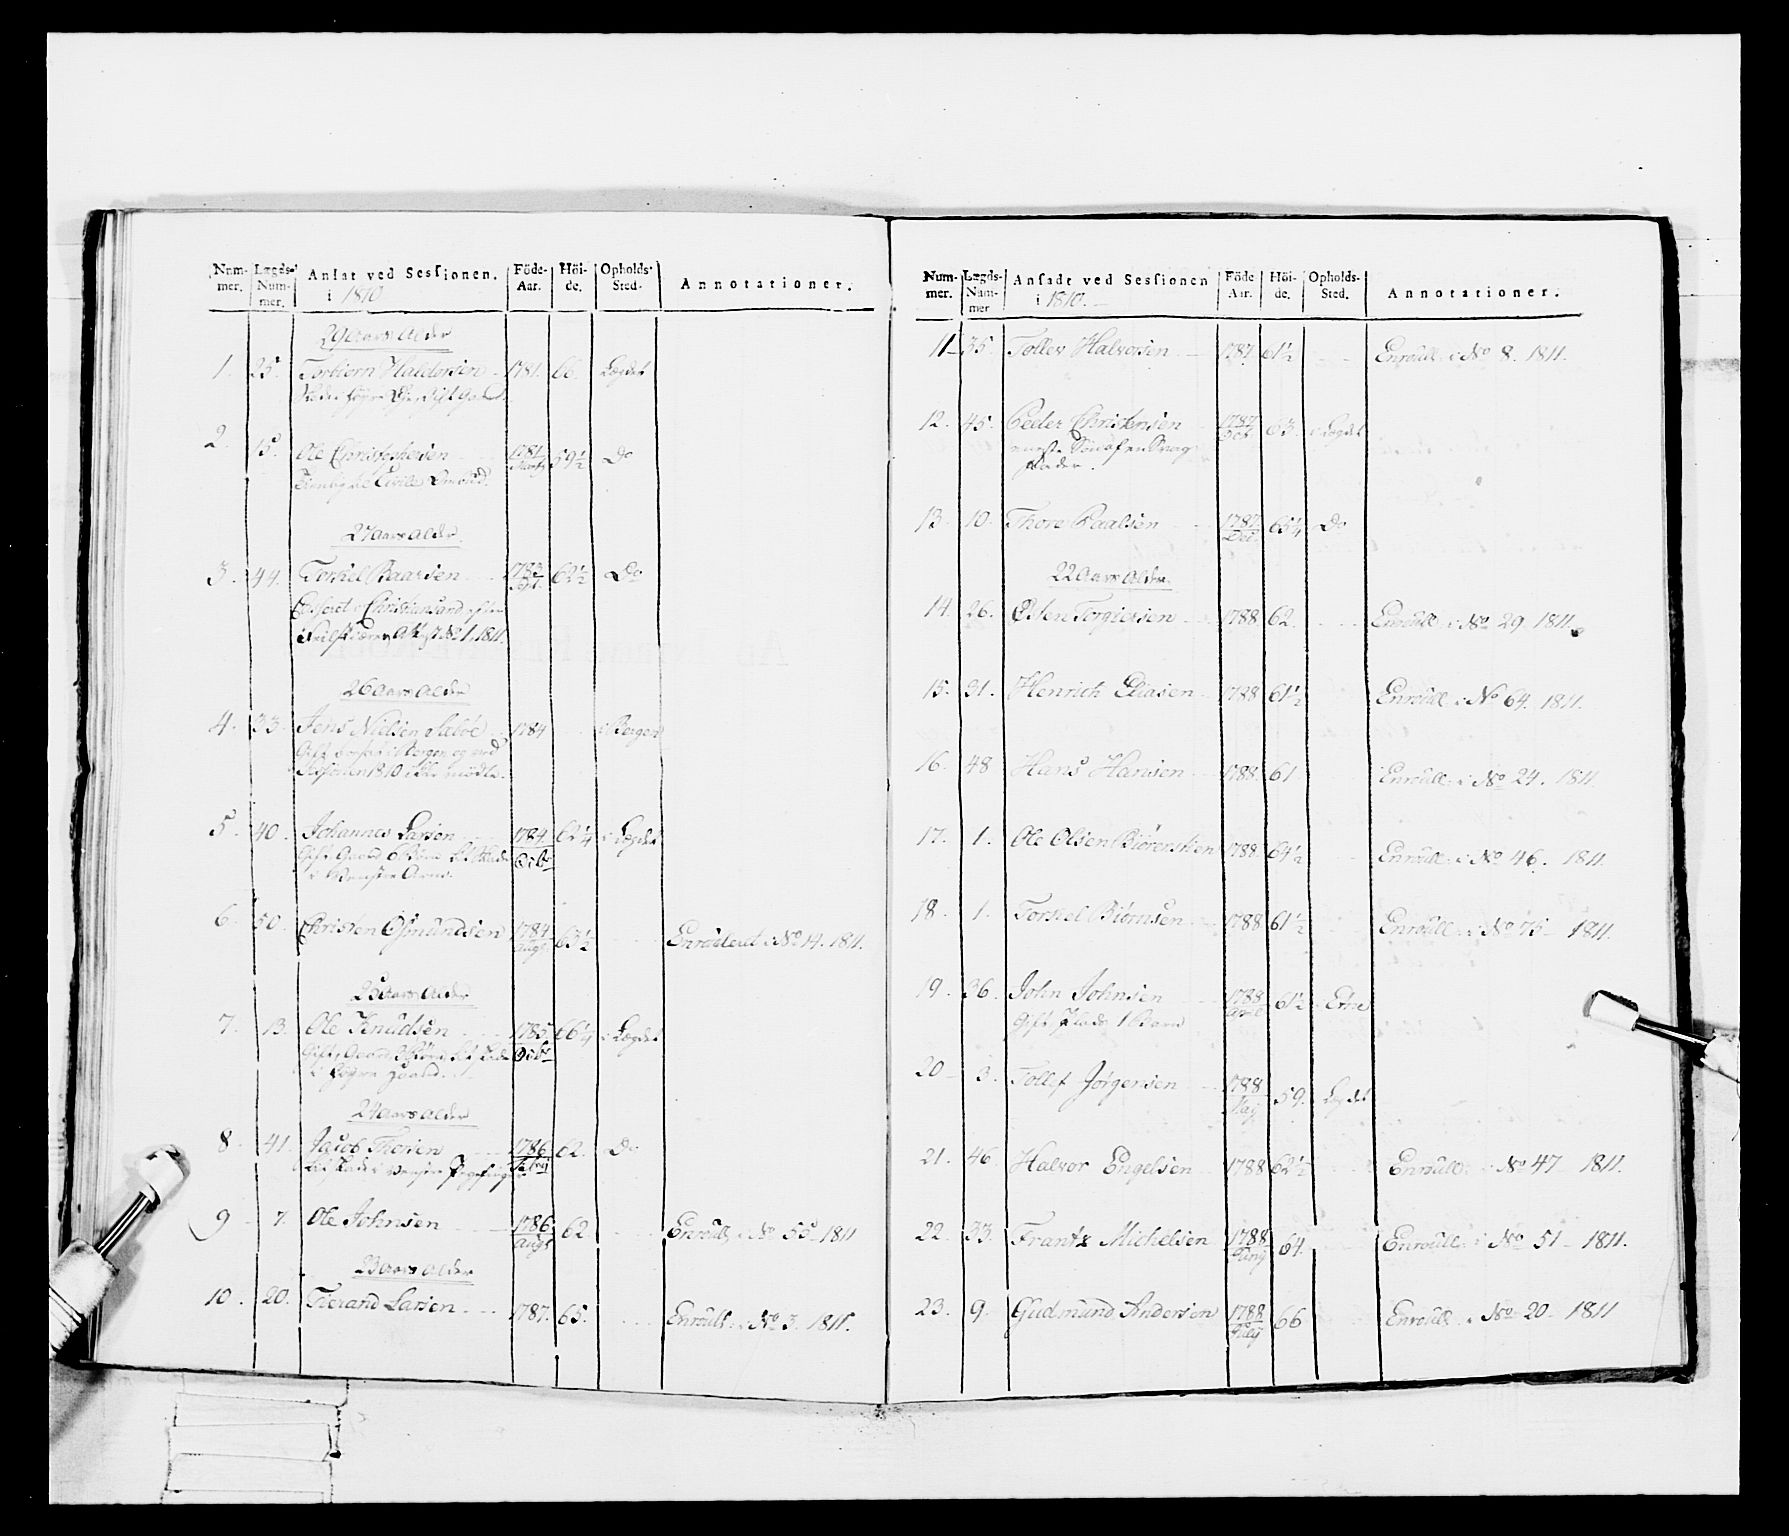 Num-mer. Lægds-Num-mer. Ansat ved Sessionen. i 1810 Föde-Aar. Höi-de. Opholds-Sted. Annotationer.
29 Aars Alder
1. 25. Torbiörn Haldorsen 1781. 66. Lægdet
2. 15. Ole Christophersen 1781 Marts 59½ Do
27 Aars Alder
3. 44. Torkel Baarsen 1783 Sept. 62½ Do
Christiansand
No 1. 1811.
26 Aars Alder
4. 33 Jens Nielsen Sæböe 1784 i Bergen
Gift i Bergen og ved
Sessionen 1810 ikke mödte.
5. 40. Johannes Larsen 1784 Octbr 62¼ i Lægdet
Gift, Gaard
i Venstre Arm.
6. 50. Christen Osmundsen 1784 Augt 63½ Enroulleret i No 14. 1811.
25 Aars Alder
7. 13. Ole Knudsen 1785 Octbr 66¼ i Lægdet
Gift, Gaard
24 Aars Alder
8. 41. Jacob Thorsen 1786 62. Do
9 7. Ole Johnsen 1786 Augt 62 Enroull: i No 55 1811
23 Aars Alder
10. 20. Tierand Larsen 1787. 65. Enroull: i No 3. 1811.
Num-mer. Lægds-Num-mer Ansadt ved Sessionen i 1810. Föde Aar. Höi-de. Opholds-Sted. Annotationer.
11 35. Tollev Halvorsen 1787 61½ Enroull: i No 8. 1811.
12. 45. Peder Christensen 1787 Dec 63. i Lægdet
Fader.
13. 10. Thore Paalsen 1787. Dec. 65¼ Do
22 Aars Alder
14. 26. Osten Torgiersen 1788 62. Enroull: i No 29. 1811.
15. 31. Henrich Eliasen 1788 61½ Enroull: i No 64. 1811.
16. 48 Hans Hansen 1788. 61 Enroull: i No 24. 1811.
17. 1. Ole Olsen Biörensteen 1788. 64½ Enroull: i No 46. 1811.
18. 1. Torkel Biörnsen 1788 61½ Enroull: i No 75 1811.
19. 36. John Johnsen 1788 April 61½ Etne
Gift Plads 1 Barn
20 3. Tollef Jörgensen 1788 May 59. Lægdet
21. 46. Halvor Engelsen 1788 62½ Enroull: i No 47 1811.
22. 33. Frantz Michelsen 1788 Juny 64. Enroull: i No 51 1811.
23. 9. Gudmund Andersen 1788 66 Enroull: i No 20 1811